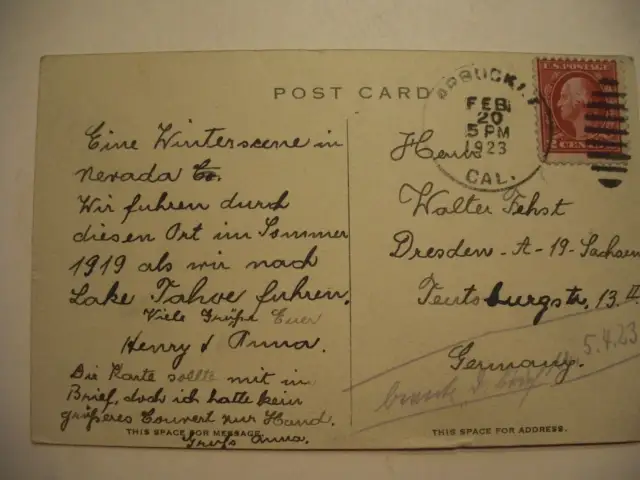 POST CARD
Eine Winterscene in
Nevada Co.
Wir fuhren durch
diesen Ort im Sommer
1919 als wir nach
Lake Tahoe fuhren.
Viele Grüße Euer
Henry & Anna.
Die Karte sollte mit in
Brief, doch ich hatte kein
größeres Couvert zur Hand.
Gruß Anna.
THIS SPACE FOR MESSAGE.
ARBUCKLE
FEB
20
5 PM
1923
CAL.
U.S. POSTAGE
2 CENTS 2
Herrn
Walter Fehst
Dresden-A-19-Sachsen
Teutsburgstr. 13. II
Germany.
5.4.23
THIS SPACE FOR ADDRESS.